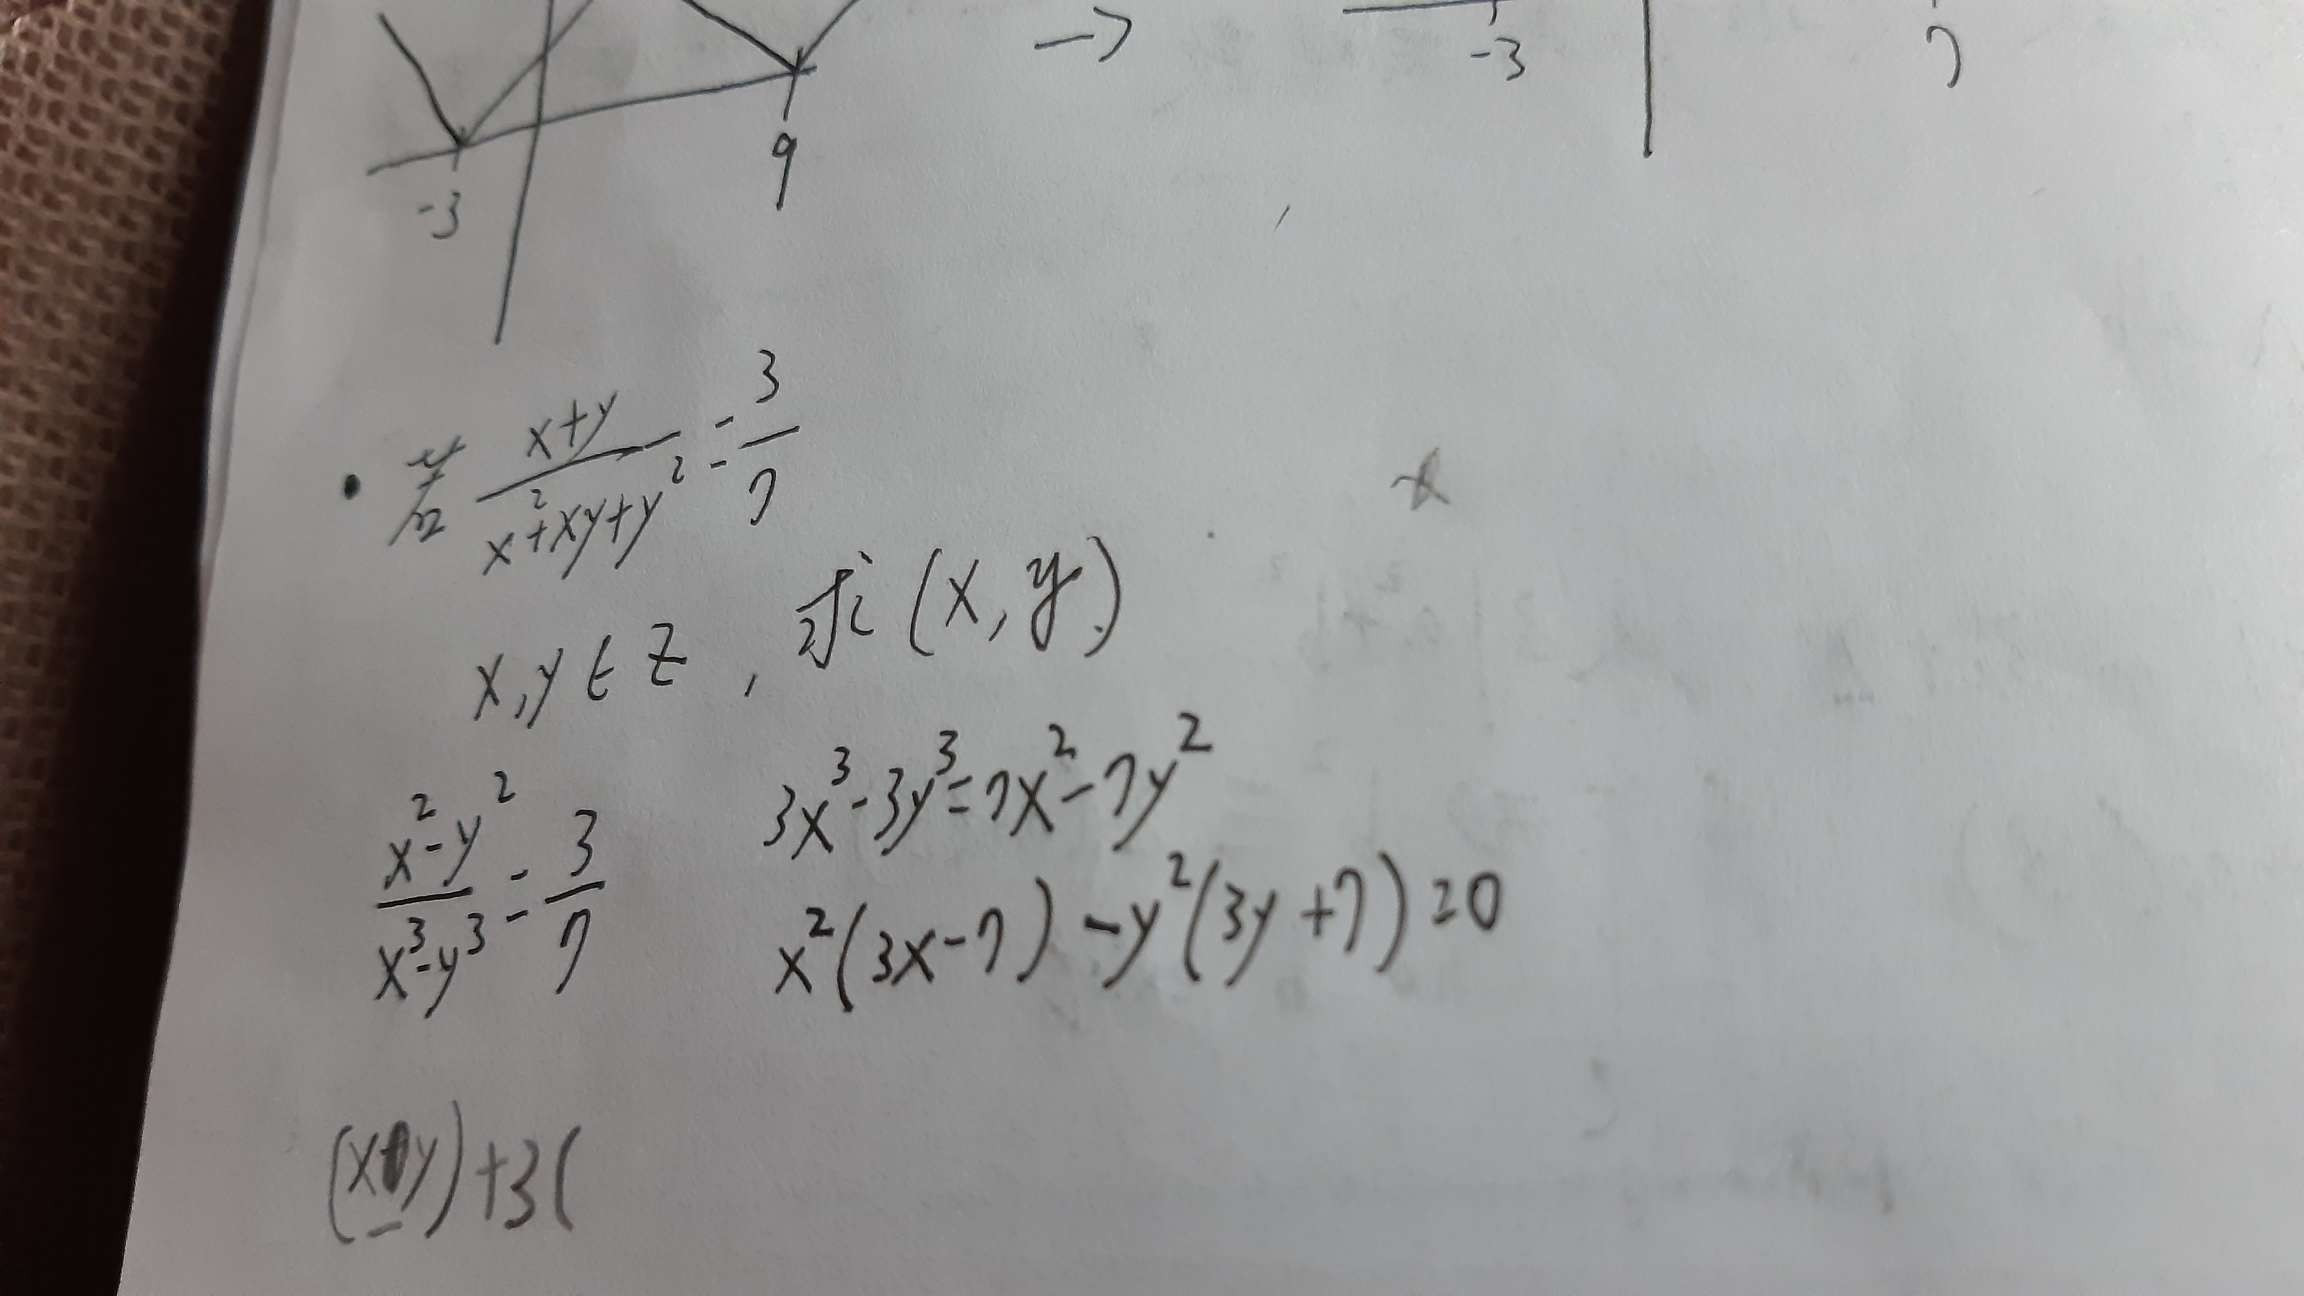 -3
9
→
-3
7
• 若 (x+y)/(x²+xy+y²) = 3/7
x, y ∈ Z , 求 (x, y)
(x²-y²)/(x³-y³) = 3/7
3x³-3y³=7x²-7y²
x²(3x-7) -y²(3y+7)=0
(x-y)+3(
x